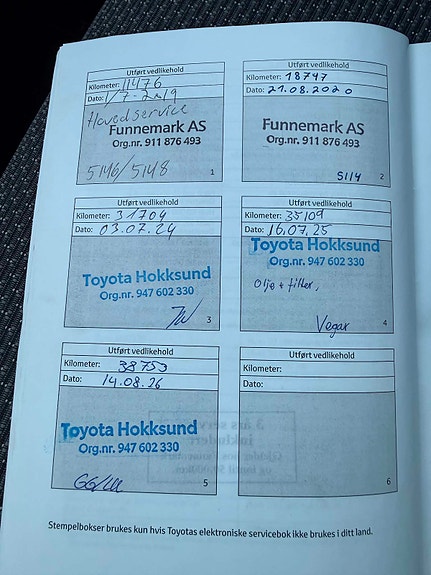 Utført vedlikehold
Kilometer: 11476
Dato: 1/7-2019
Hovedservice
Funnemark AS
Org.nr. 911 876 493
5146/5148
1
Utført vedlikehold
Kilometer: 18747
Dato: 21.08.2020
Funnemark AS
Org.nr. 911 876 493
5114
2
Utført vedlikehold
Kilometer: 31704
Dato: 03.07.24
Toyota Hokksund
Org.nr. 947 602 330
3
Utført vedlikehold
Kilometer: 35109
Dato: 16.07.25
Toyota Hokksund
Org.nr. 947 602 330
Olje + filter,
Vegar
4
Utført vedlikehold
Kilometer: 38753
Dato: 14.08.26
Toyota Hokksund
Org.nr. 947 602 330
5
Utført vedlikehold
Kilometer:
Dato:
6
Stempelbokser brukes kun hvis Toyotas elektroniske servicebok ikke brukes i ditt land.